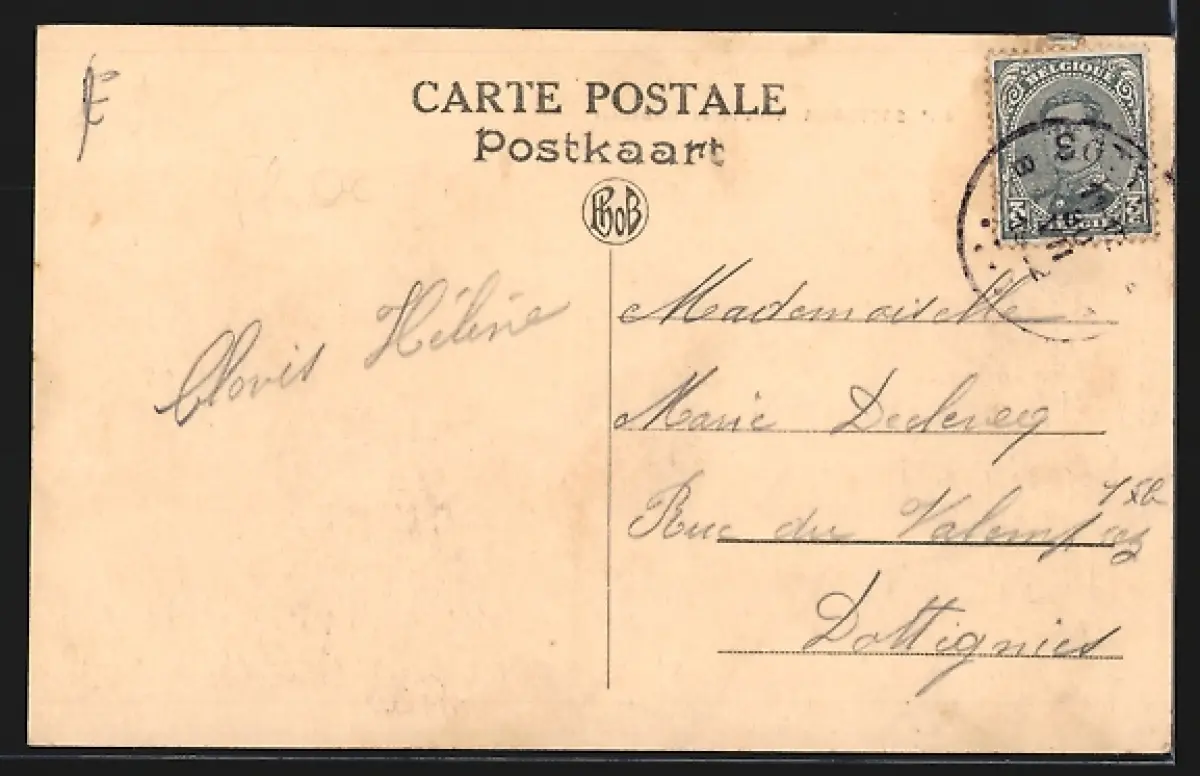 CARTE POSTALE
Postkaart
BELGIQUE
Clovis Hélène
Mademoiselle
Marie Declercq
Rue du Valemprez
Dottignies